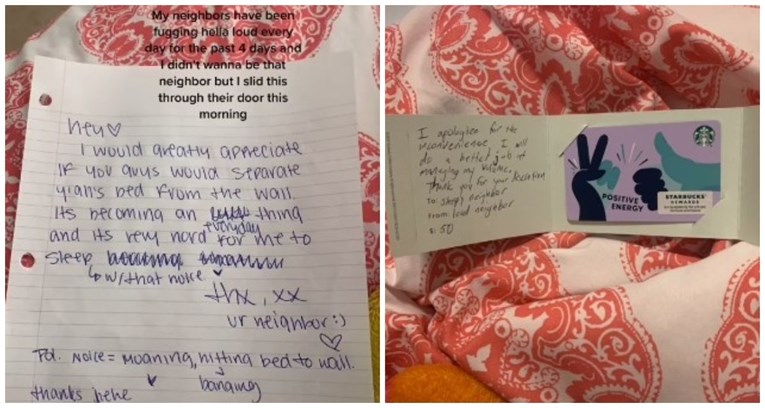 My neighbors have been
fugging hella loud every
day for the past 4 days and
I didn't wanna be that
neighbor but I slid this
through their door this
morning
hey♡
I would greatly appreciate
If you guys would separate
y'all's bed from the wall.
Its becoming an everyday thing
and its very hard for me to
sleep
w/ that noice
thx, xx
ur neighbor :)
♡
Pd. Noice = Moaning, hitting bed to wall.
banging
thanks hehe
I apologies for the
inconvenience, I will
do a better job of
managing my volume.
Thank you for your
to: sleepy neighbor
from: loud neighbor
: 5D
POSITIVE
ENERGY
STARBUCKS
REWARDS